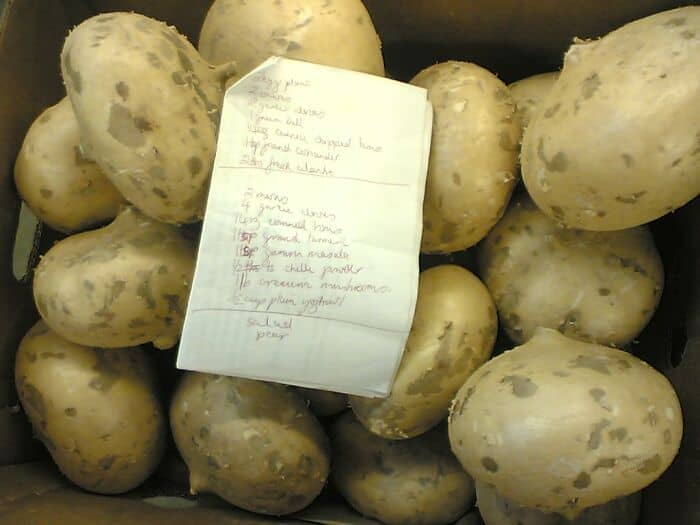 egg plant
2 onions
garlic cloves
1 green bell
coarsely chopped toms
1 tsp ground coriander
fresh cilantro
2 onions
4 garlic cloves
14oz canned toms
1 tsp ground turmeric
1 tsp garam masala
1/2 ts chilli powder
1lb cremini mushrooms
cups plain yoghurt
salad
pear